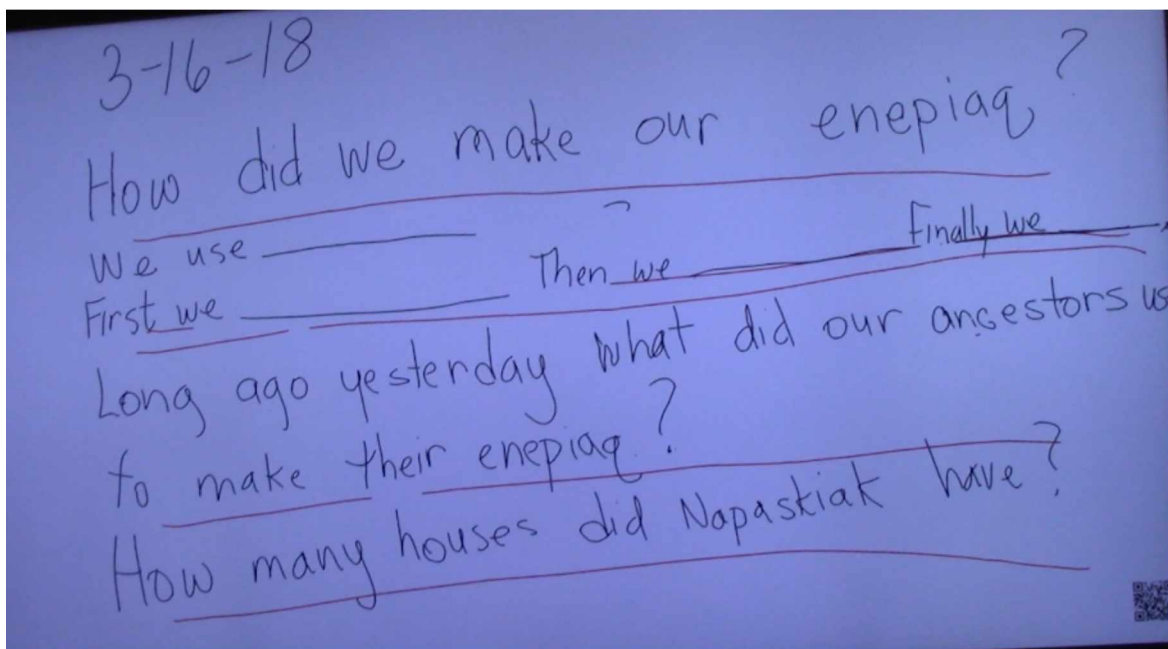 3-16-18
How did we make our enepiaq?
We use
First we Then we Finally we
Long ago yesterday what did our ancestors us
to make their enepiaq?
How many houses did Napaskiak have?